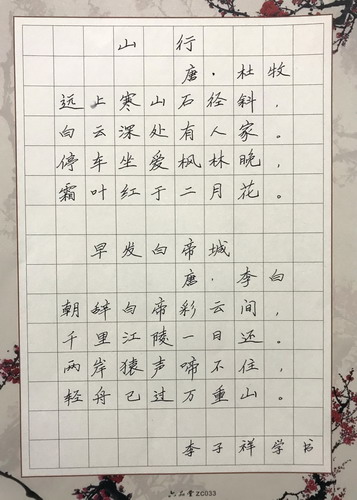 山行
唐·杜牧
远上寒山石径斜，
白云深处有人家。
停车坐爱枫林晚，
霜叶红于二月花。
早发白帝城
唐·李白
朝辞白帝彩云间，
千里江陵一日还。
两岸猿声啼不住，
轻舟已过万重山。
李子祥学书
六品堂 ZC033